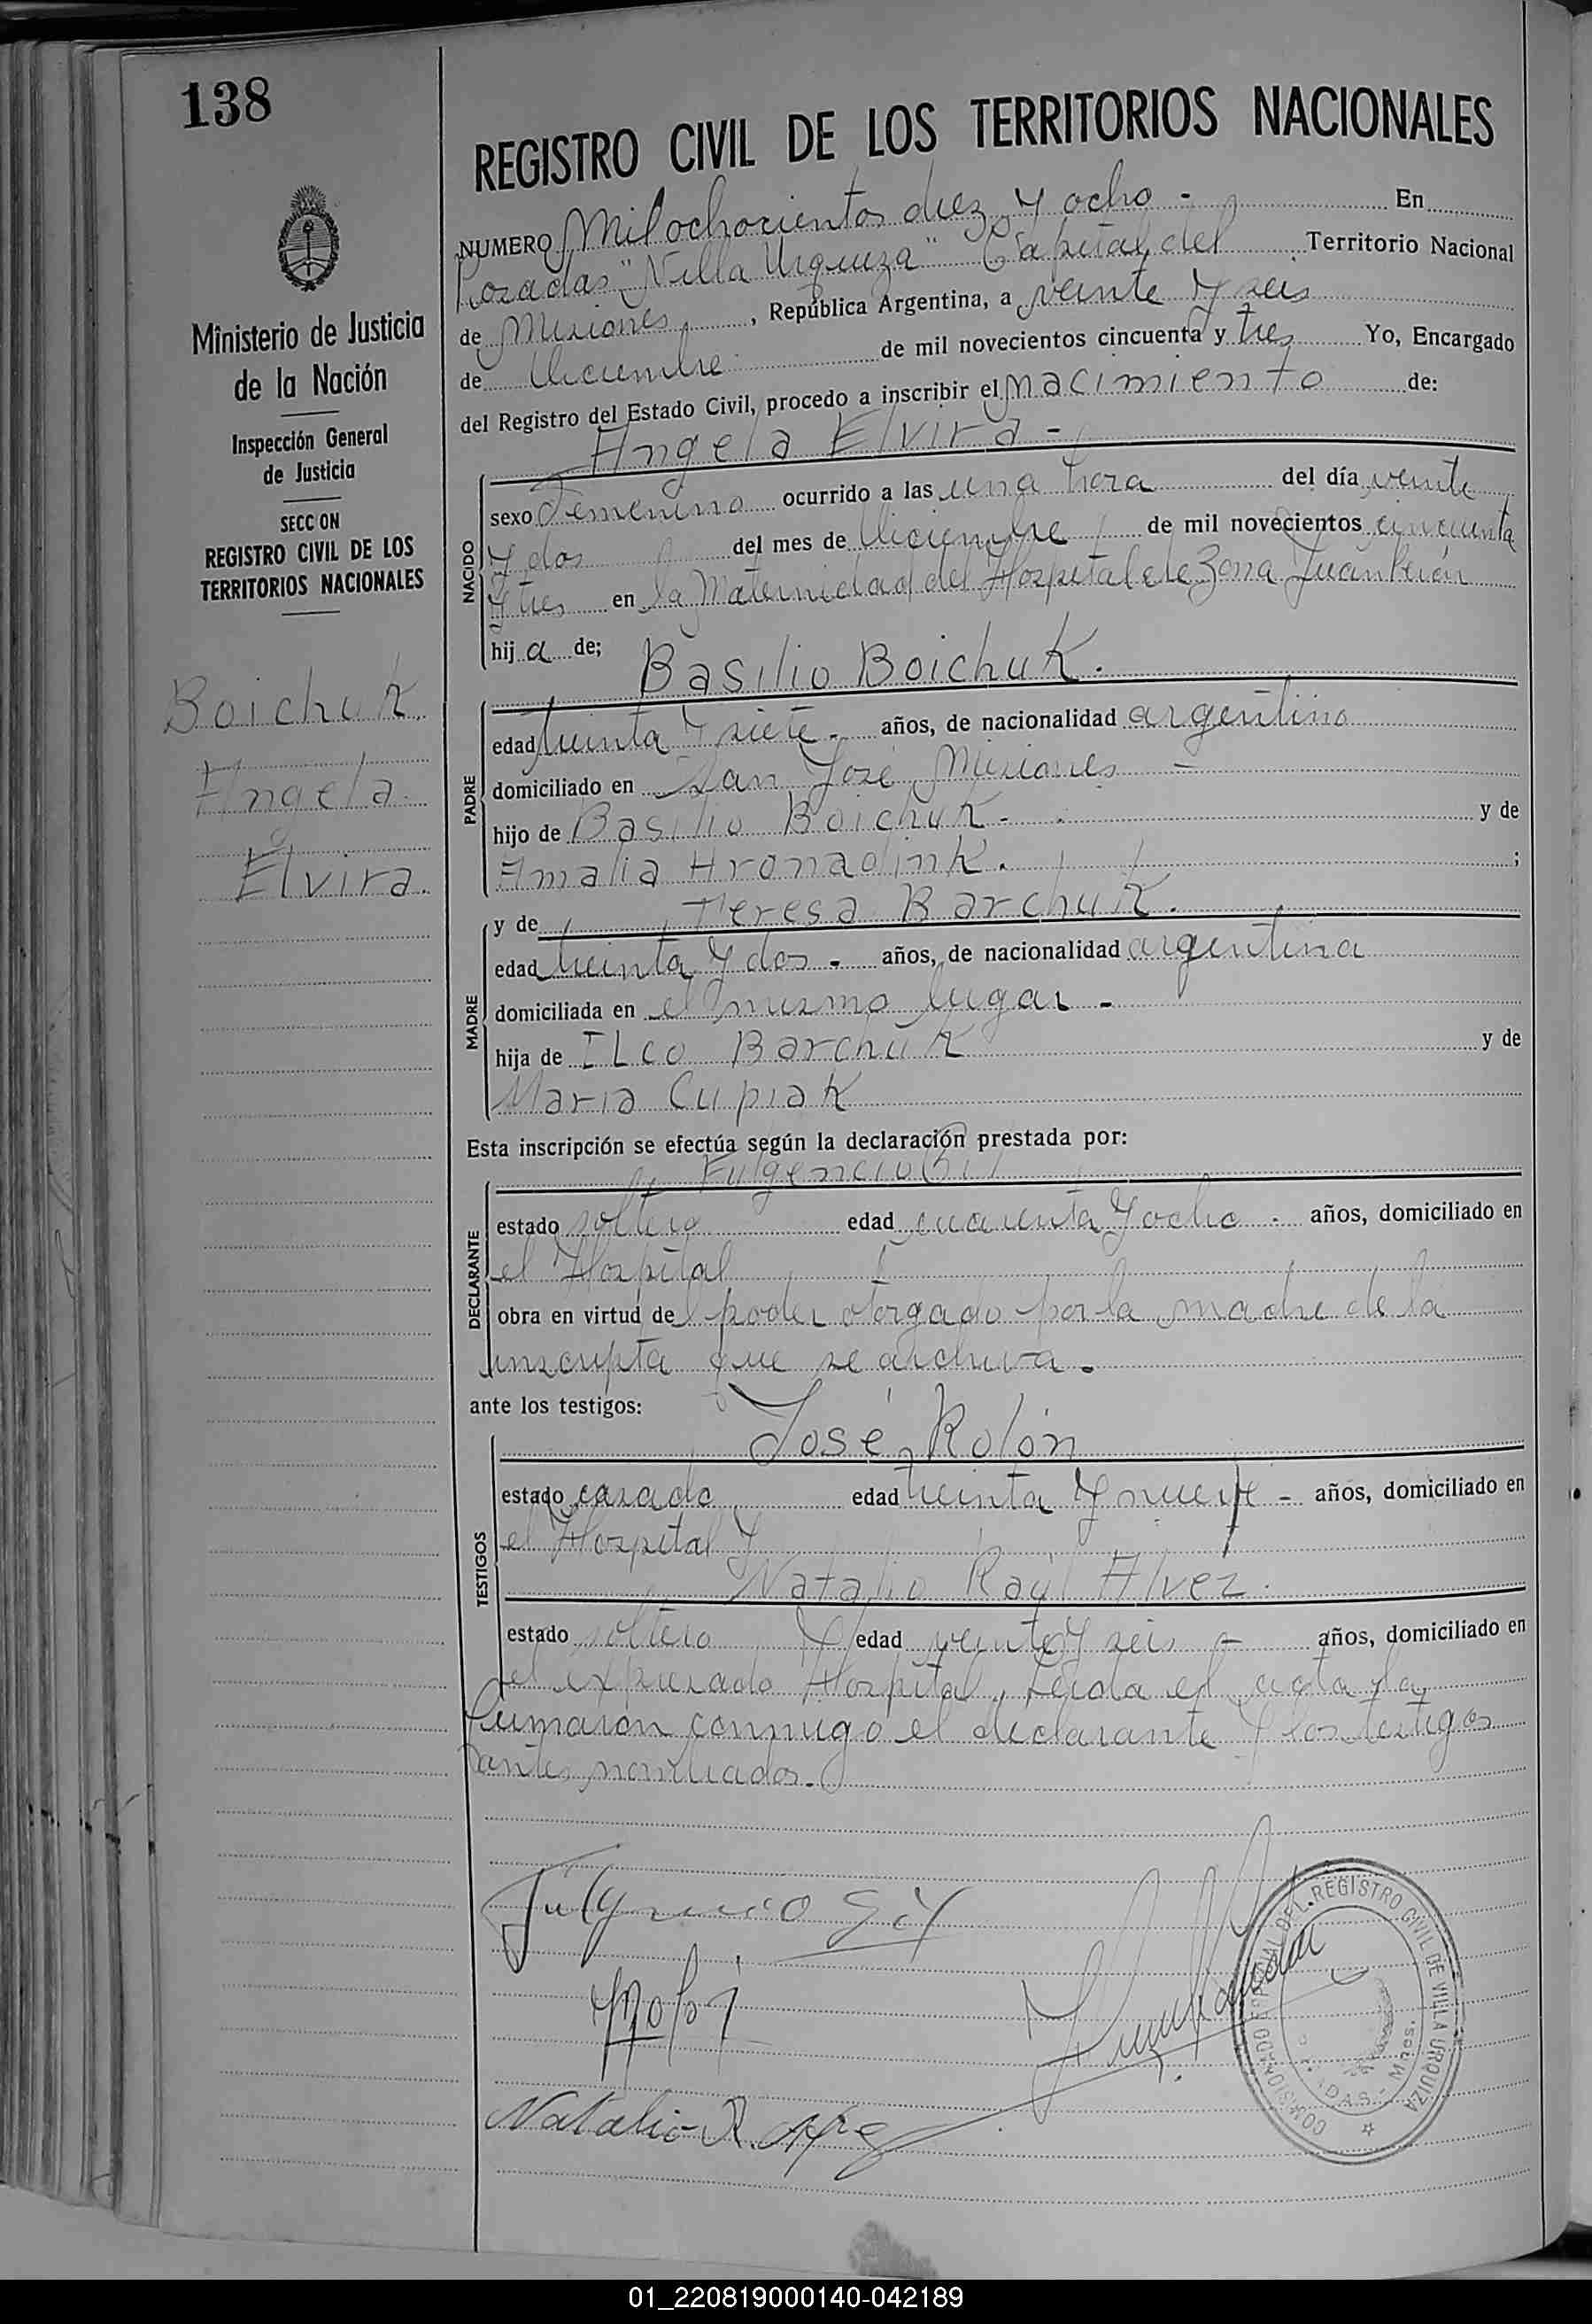 138
REGISTRO CIVIL DE LOS TERRITORIOS NACIONALES
NUMERO Mil ochocientos diez y ocho - En
Posadas "Villa Urquiza" Capital del Territorio Nacional
de Misiones, República Argentina, a veinte y seis
de Diciembre de mil novecientos cincuenta y tres Yo, Encargado
del Registro del Estado Civil, procedo a inscribir el nacimiento de:
Angela Elvira -
NACIDO
sexo Femenino ocurrido a las una hora del día veinte
y dos del mes de Diciembre de mil novecientos cincuenta
y tres en la Maternidad del Hospital de Zona Juan Perón
hija de; Basilio Boichuk.
PADRE
edad treinta y siete - años, de nacionalidad argentino
domiciliado en San José, Misiones -
hijo de Basilio Boichuk - y de
Amalia Hronadink. ;
y de Teresa Barchuk.
MADRE
edad treinta y dos - años, de nacionalidad argentina
domiciliada en el mismo lugar -
hija de ILco Barchuk y de
Maria Cupiak
Esta inscripción se efectúa según la declaración prestada por:
Fulgencio Gil
DECLARANTE
estado soltero edad cuarenta y ocho - años, domiciliado en
el Hospital
obra en virtud del poder otorgado por la madre de la
inscripta que se archiva.
ante los testigos:
José Rolón
TESTIGOS
estado casado edad treinta y nueve - años, domiciliado en
el Hospital y
Natalio Raúl Alvez.
estado soltero edad veinte y seis - años, domiciliado en
el expresado Hospital, Leida el acta la
firmaron conmigo el declarante y los testigos
antes nombrados.
Fulgencio Gil
Natalio R. Alvez
COMISIONADO ESPECIAL DEL REGISTRO CIVIL DE VILLA URQUIZA
POSADAS - Mnes.
Ministerio de Justicia
de la Nación
Inspección General
de Justicia
SECCION
REGISTRO CIVIL DE LOS
TERRITORIOS NACIONALES
Boichuk
Angela
Elvira.
01_220819000140-042189